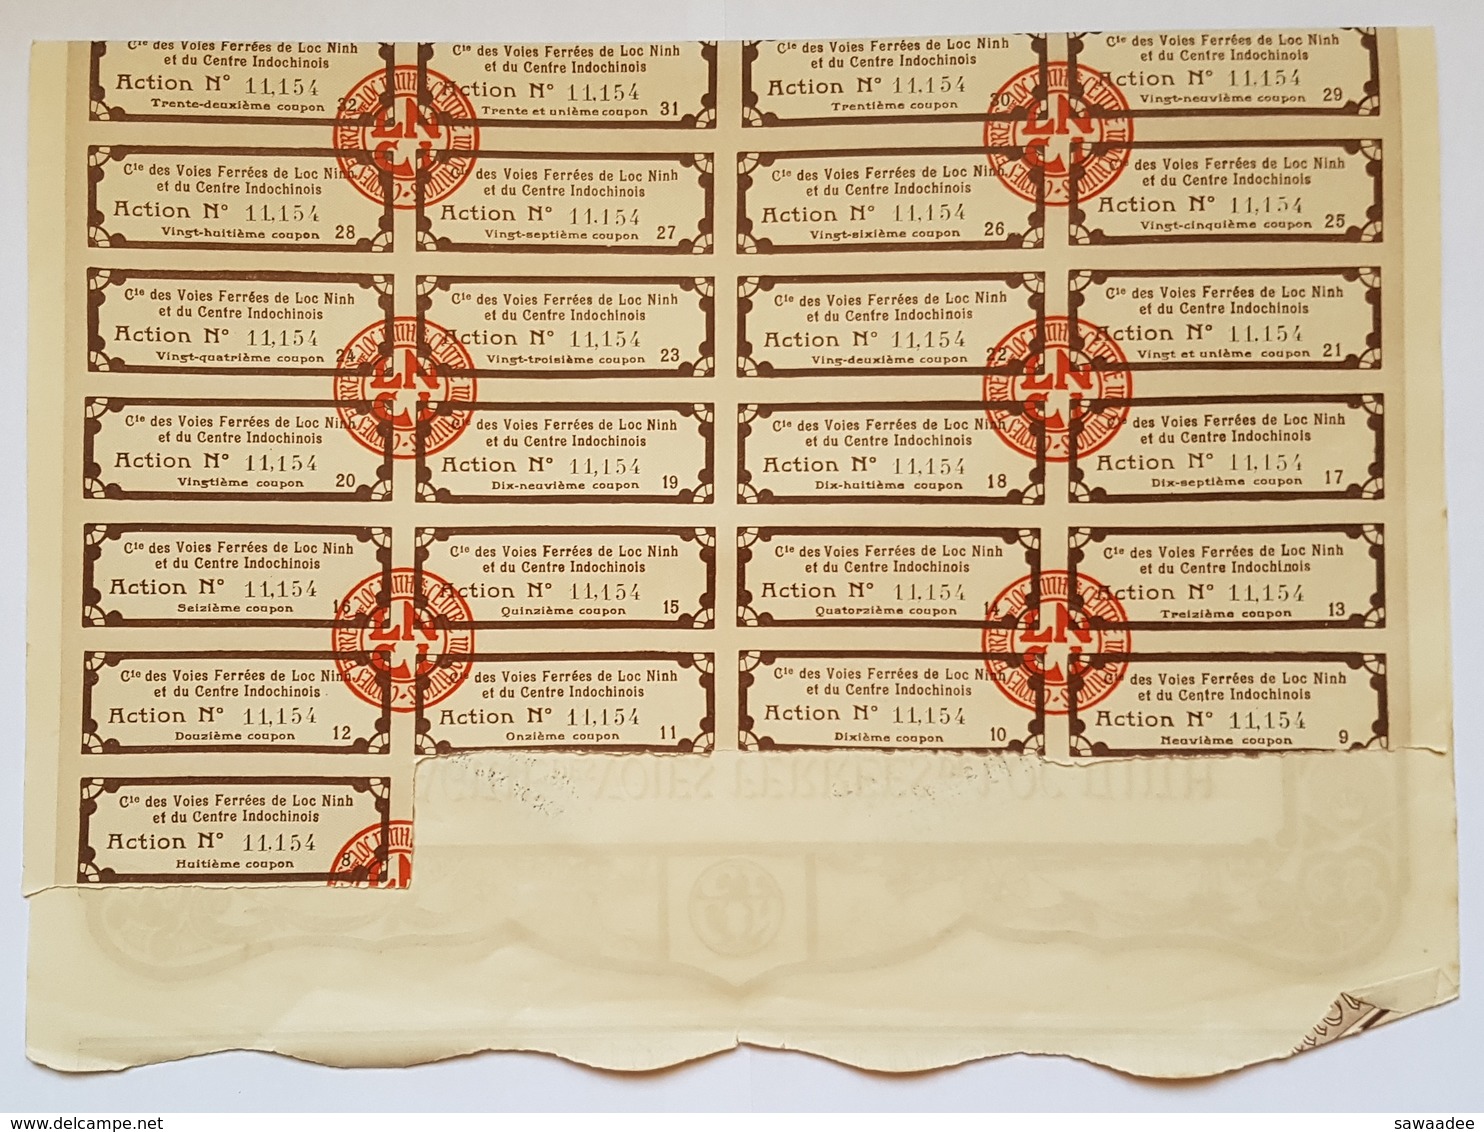 Cie des Voies Ferrées de Loc Ninh
et du Centre Indochinois
Action No 11,154
Trente-deuxième coupon 32
Cie des Voies Ferrées de Loc Ninh
et du Centre Indochinois
Action No 11.154
Trente et unième coupon 31
Cie des Voies Ferrées de Loc Ninh
et du Centre Indochinois
Action No 11,154
Trentième coupon 30
Cie des Voies Ferrées de Loc Ninh
et du Centre Indochinois
Action No 11.154
Vingt-neuvième coupon 29
Cie des Voies Ferrées de Loc Ninh
et du Centre Indochinois
Action No 11,154
Vingt-huitième coupon 28
Cie des Voies Ferrées de Loc Ninh
et du Centre Indochinois
Action No 11.154
Vingt-septième coupon 27
Cie des Voies Ferrées de Loc Ninh
et du Centre Indochinois
Action No 11,154
Vingt-sixième coupon 26
Cie des Voies Ferrées de Loc Ninh
et du Centre Indochinois
Action No 11,154
Vingt-cinquième coupon 25
Cie des Voies Ferrées de Loc Ninh
et du Centre Indochinois
Action No 11,154
Vingt-quatrième coupon 24
Cie des Voies Ferrées de Loc Ninh
et du Centre Indochinois
Action No 11.154
Vingt-troisième coupon 23
Cie des Voies Ferrées de Loc Ninh
et du Centre Indochinois
Action No 11,154
Ving-deuxième coupon 22
Cie des Voies Ferrées de Loc Ninh
et du Centre Indochinois
Action No 11.154
Vingt et unième coupon 21
Cie des Voies Ferrées de Loc Ninh
et du Centre Indochinois
Action No 11,154
Vingtième coupon 20
Cie des Voies Ferrées de Loc Ninh
et du Centre Indochinois
Action No 11,154
Dix-neuvième coupon 19
Cie des Voies Ferrées de Loc Ninh
et du Centre Indochinois
Action No 11,154
Dix-huitième coupon 18
Cie des Voies Ferrées de Loc Ninh
et du Centre Indochinois
Action No 11,154
Dix-septième coupon 17
Cie des Voies Ferrées de Loc Ninh
et du Centre Indochinois
Action No 11,154
Seizième coupon 16
Cie des Voies Ferrées de Loc Ninh
et du Centre Indochinois
Action No 11,154
Quinzième coupon 15
Cie des Voies Ferrées de Loc Ninh
et du Centre Indochinois
Action No 11.154
Quatorzième coupon 14
Cie des Voies Ferrées de Loc Ninh
et du Centre Indochinois
Action No 11,154
Treizième coupon 13
Cie des Voies Ferrées de Loc Ninh
et du Centre Indochinois
Action No 11,154
Douzième coupon 12
Cie des Voies Ferrées de Loc Ninh
et du Centre Indochinois
Action No 11,154
Onzième coupon 11
Cie des Voies Ferrées de Loc Ninh
et du Centre Indochinois
Action No 11,154
Dixième coupon 10
Cie des Voies Ferrées de Loc Ninh
et du Centre Indochinois
Action No 11,154
Neuvième coupon 9
Cie des Voies Ferrées de Loc Ninh
et du Centre Indochinois
Action No 11.154
Huitième coupon 8
www.delcampe.net
sawaadee